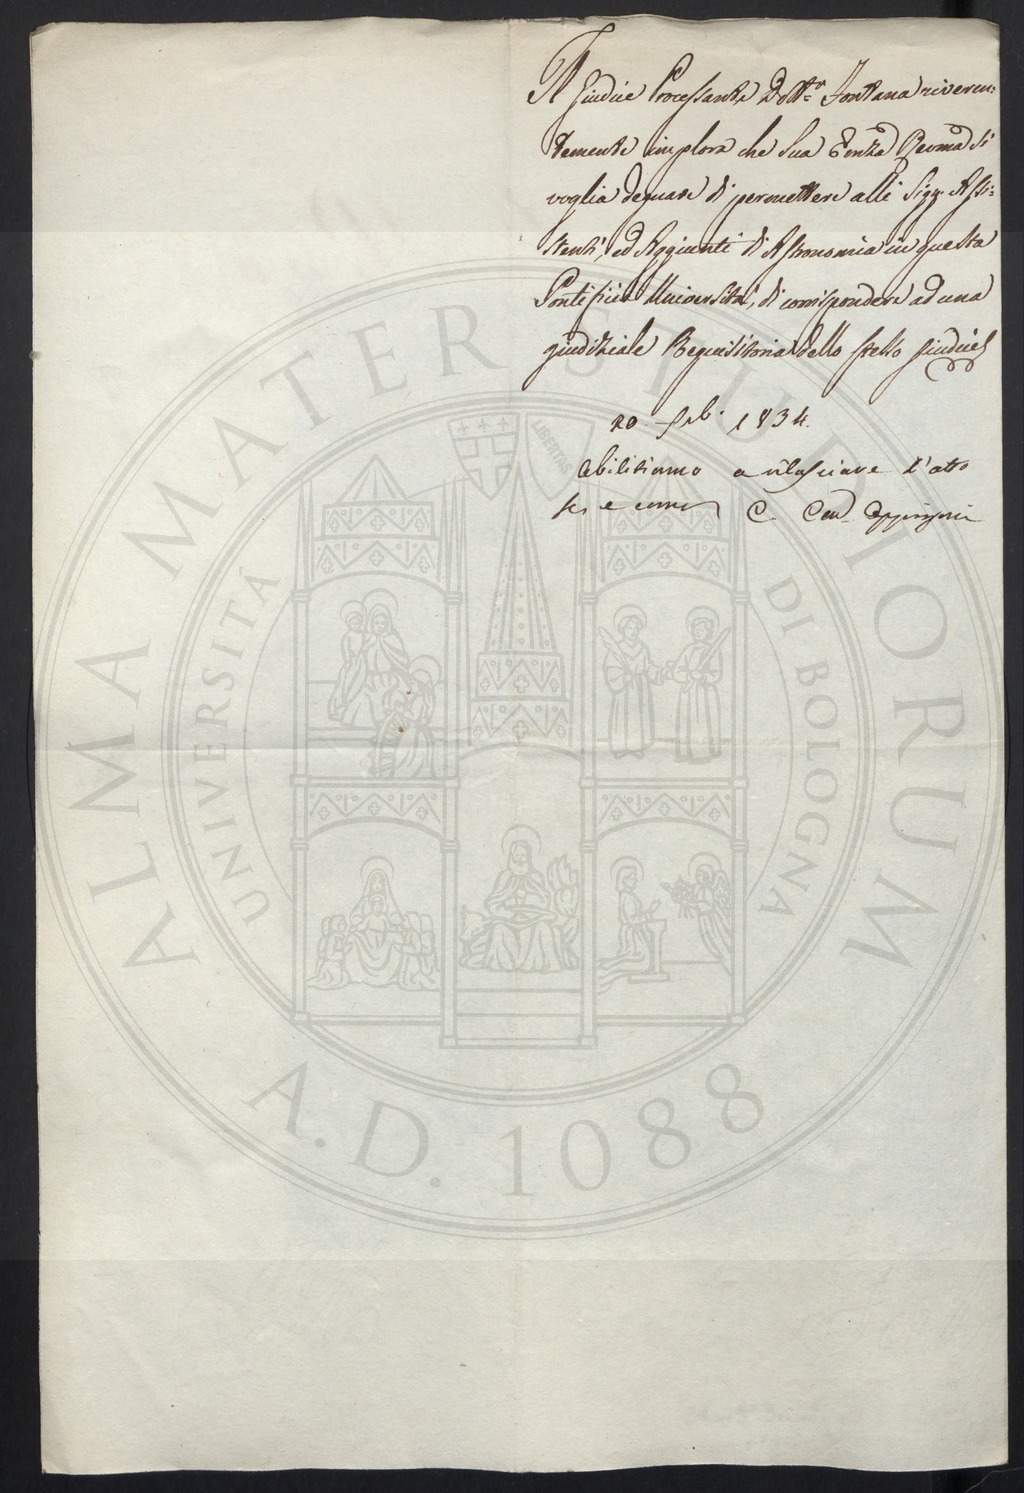 Il Giudice Processante Dott.r Fontana riveren=
temente implora che Sua Emza Revma si
voglia degnare di permettere alli Sigg. Assi=
stenti, ed Aggiunti di Astronomia in questa
Pontificia Università, di corrispondere ad una
giudiziale Requisitoria dello stesso giudice
20 Feb. 1834.
Abilitiamo a rilasciare l'atto
se, e come C. Card. Oppizzoni
ALMA MATER STUDIORUM
UNIVERSITÀ DI BOLOGNA
LIBERTAS
A.D. 1088